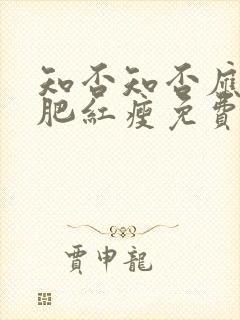 知否知否應
肥紅瘦免費
賈申龍